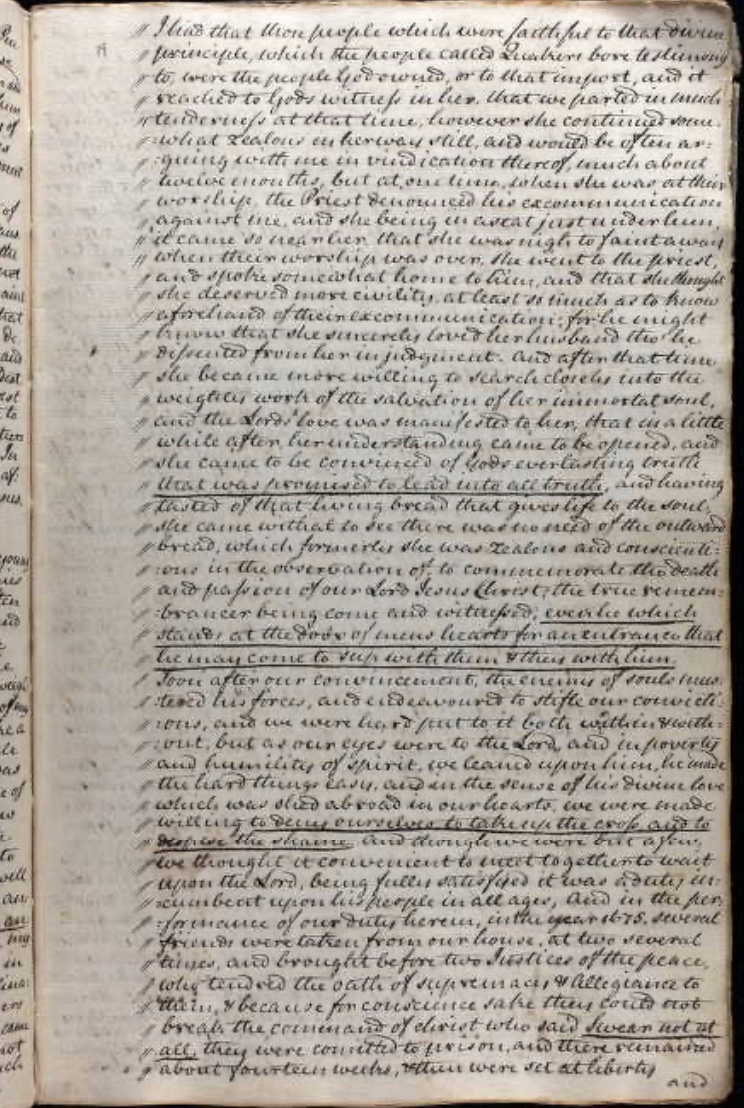 " I had that those people which were faithful to that divine
" principle, which the people called Quakers bore testimony
" to, were the people God owned, or to that import, and it
" reached to Gods witness in her, that we parted in much
" tenderness at that time, however she continued some:
" :what Zealous in her way still, and would be often ar:
" :guing with me in vindication thereof, much about
" twelve months, but at one time, when she was at their
" worship, the Priest denounced his excommunication
" against me, and she being in a seat just under him,
" it came so near her, that she was nigh to faint away
" when their worship was over, she went to the priest,
" and spoke somewhat home to him, and that she thought
" she deserved more civility, at least so much as to know
" aforehand of their excommunication; for he might
" know that she sincerely loved her husband tho' he
" dissented from her in judgment. And after that time
" she became more willing to search closely into the
" weighty work of the salvation of her immortal soul,
" and the Lords' love was manifested to her, that in a little
" while after, her understanding came to be opened, and
" she came to be convinced of Gods everlasting truth
" that was promised to lead into all truth, and having
" tasted of that living bread that gives life to the soul,
" she came withal to see there was no need of the outward
" bread, which formerly she was Zealous and conscienti:
" :ous in the observation of, to commemorate the death
" and passion of our Lord Jesus Christ, the true remem:
" :brancer being come and witnessed, even he which
" stands at the door of mens hearts for an entrance that
" he may come to sup with them & they with him.
" Soon after our convincement, the enemy of souls mus:
" :tered his forces, and endeavoured to stifle our convicti:
" :ons, and we were hard put to it both within & with:
" :out, but as our eyes were to the Lord, and in poverty
" and humility of spirit, we leaned upon him, he made
" the hard things easy, and in the sense of his divine love
" which was shed abroad in our hearts, we were made
" willing to deny ourselves to take up the cross, and to
" despise the shame, And though we were but a few,
" we thought it convenient to meet together to wait
" upon the Lord, being fully satisfyed it was a duty in:
" :cumbent upon his people in all ages, And in the per
" :formance of our duty herein, in the year 1675, several
" friends were taken from our house, at two several
" times, and brought before two Justices of the peace,
" who tendred the oath of supremacy & Allegiance to
" them, & because for conscience sake they could not
" break the command of christ who said Swear not at
" all, they were comitted to prison, and there remained
" about fourteen weeks, & then were set at liberty
and